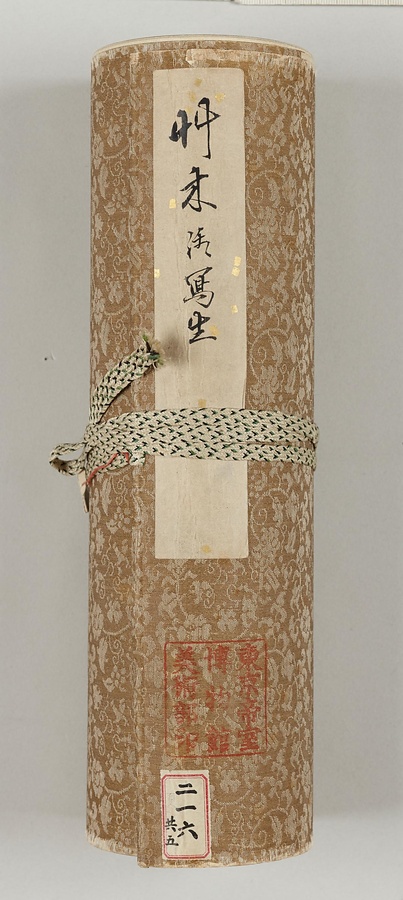 艸木
写生
東京帝室
博物館
美術部
二一六
共五